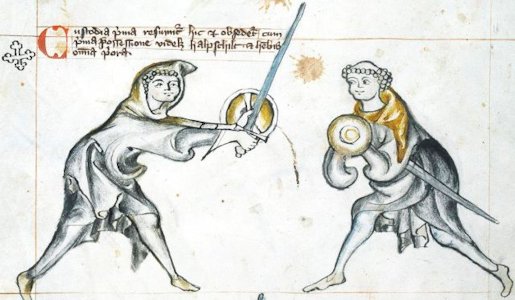 Custodia pma resumit᷑ hic & obsedet᷑ cum
pma possessione videlꝫ halpschilt
omnia